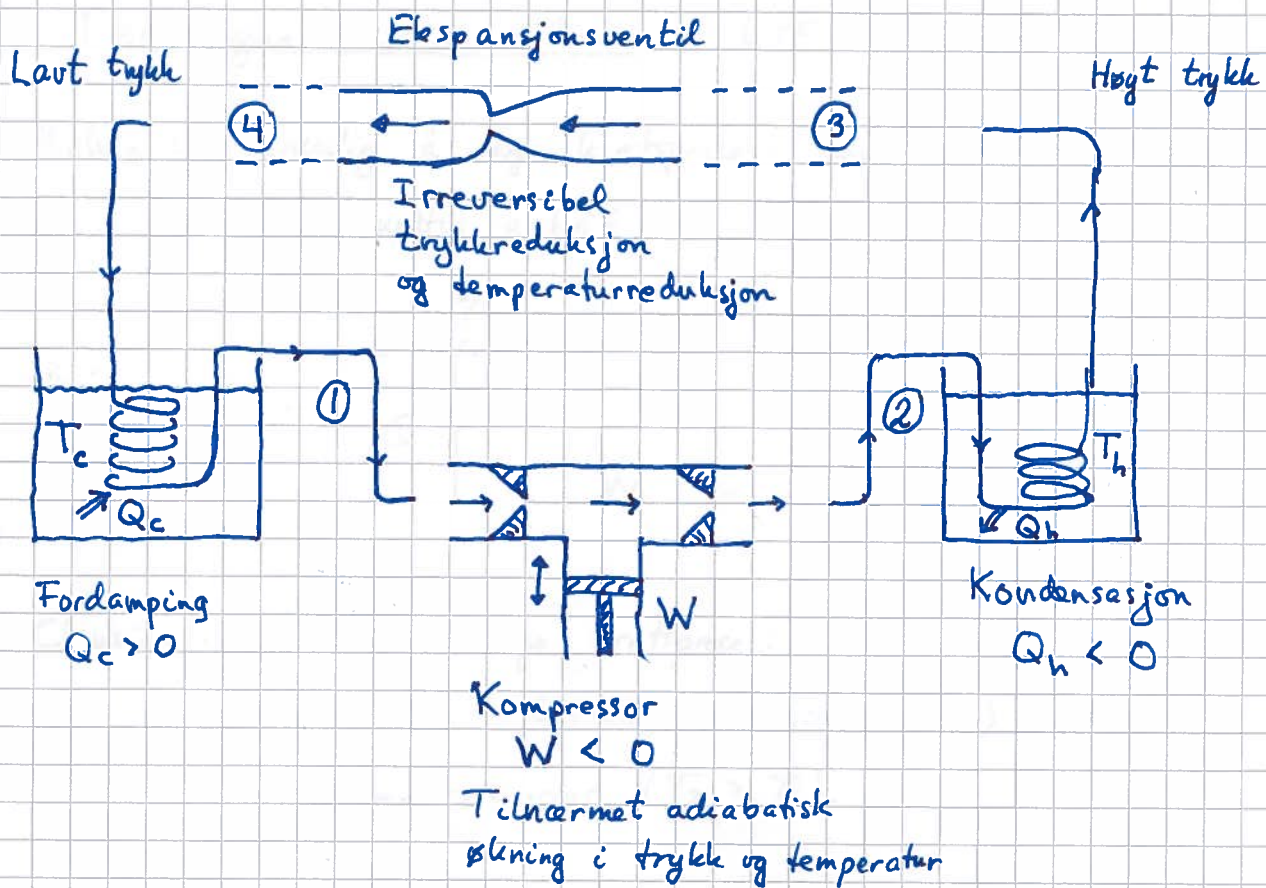 Ekspansjonsventil
Lavt trykk
Høyt trykk
4
3
Irreversibel
trykkreduksjon
og temperaturreduksjon
1
2
T_c
Q_c
T_h
Q_h
Fordamping
Q_c > 0
W
Kondensasjon
Q_h < 0
Kompressor
W < 0
Tilnærmet adiabatisk
økning i trykk og temperatur